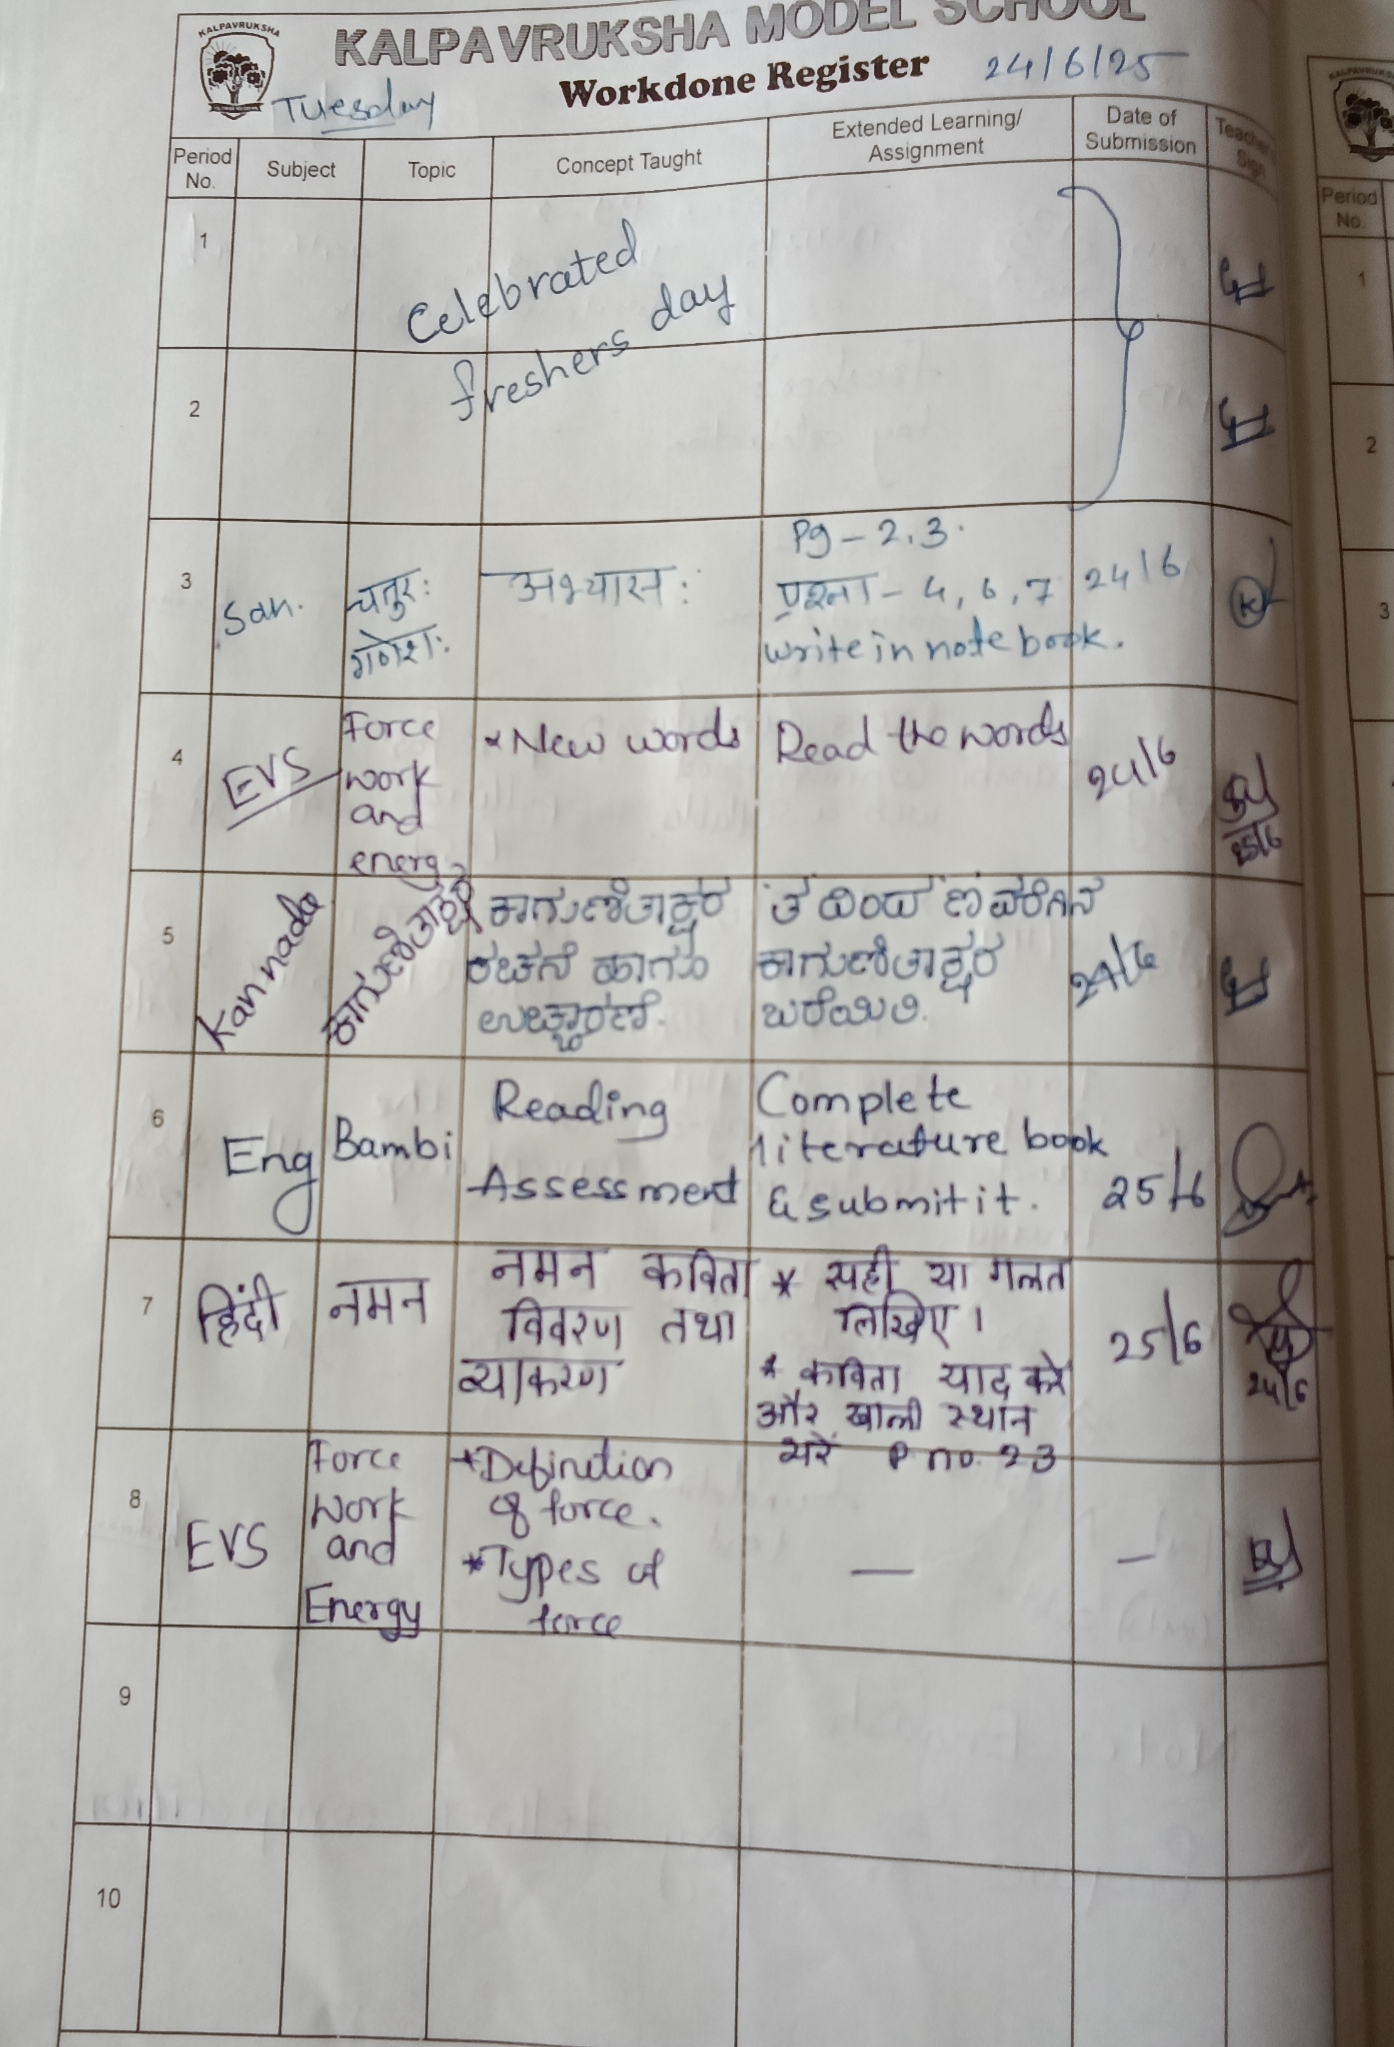 KALPAVRUKSHA
KALPAVRUKSHA MODEL SCHOOL
Workdone Register 24/6/25
Tuesday
Period No. Subject Topic Concept Taught Extended Learning/ Assignment Date of Submission Teacher's Sign
1
Celebrated
freshers day
2
3 San. चतुरः गणेशः अभ्यासः Pg - 2.3.
प्रश्ना - 4, 6, 7 24/6
write in note book.
4 EVS Force work and energy * New words Read the words 24/6
25/6
5 Kannada ಕಾಗುಣಿತಾಕ್ಷರ ಕಾಗುಣಿತಾಕ್ಷರ
ರಚನೆ ಹಾಗೂ
ಉಚ್ಚಾರಣೆ.
'ತ' ದಿಂದ 'ಣ' ವರೆಗಿನ
ಕಾಗುಣಿತಾಕ್ಷರ
ಬರೆಯಿರಿ.
24/6
6 Eng Bambi Reading
Assessment
Complete
literature book
& submit it. 25/6
7 हिंदी नमन नमन कविता
विवरण तथा
व्याकरण
* सही या गलत
लिखिए।
* कविता याद करे
और खाली स्थान
भरें P no. 23
25/6
24/6
8 EVS Force
Work
and
Energy
* Definition
of force.
* Types of
force
— —
9
10
Period
No.
1
2
3